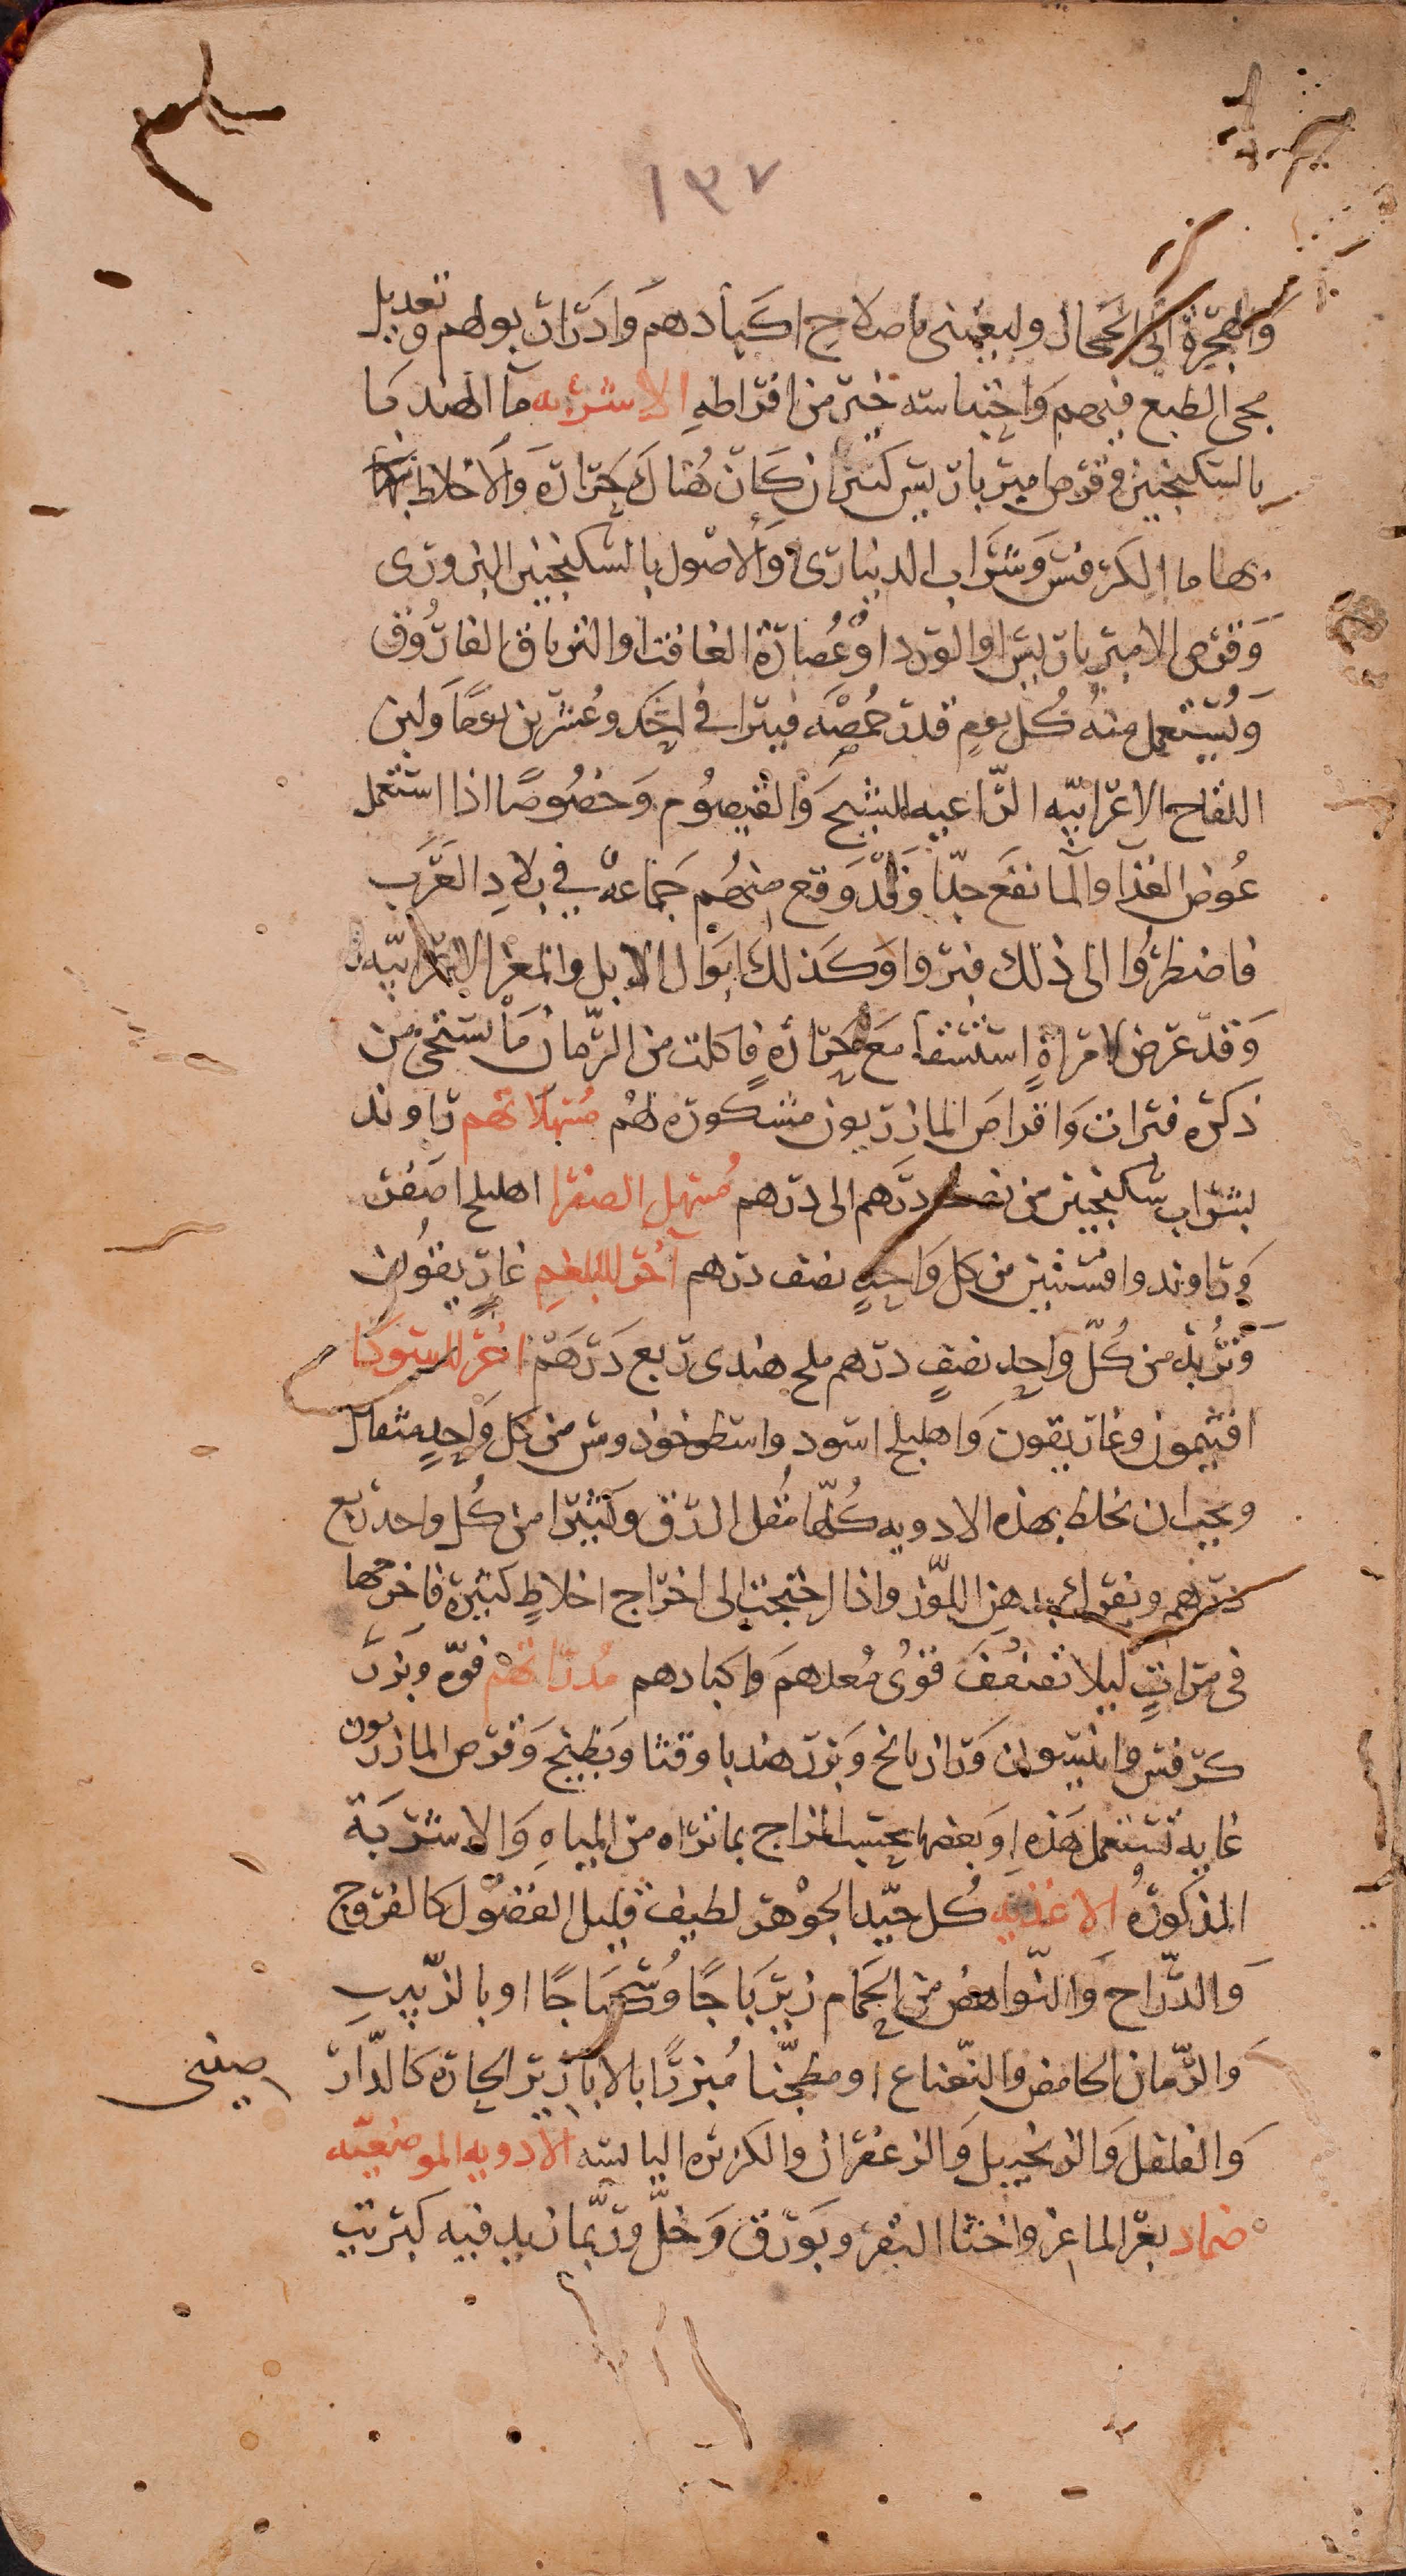 ١٣٧
والهجرة الى الحجاز وليعتنى باصلاح اكبادهم وادرار بولهم وتعديل
مجى الطبع فيهم واحتباسه خير من افراطه الاشربه ما الهندبا
بالسكنجبين وقرص ميرباريس كثير ان كان هناك حرارة والاخلاط
ما الكرفس وشراب الديناري والاصول بالسكنجبين البزوري
وقرص الاميرباريس او الورد او عصارة الغافت او الترياق الفاروق
ويستعمل منه كل يوم قدر حمصه فيبرا في احد وعشرين يوما ولبن
اللقاح الاعرابيه الراعيه للشيح والقيصوم وخصوصا اذا استعمل
عوض الغذا والما نفع جدا وقد وقع منهم جماعة في بلاد العرب
فاضطروا الى ذلك فبروا وكذلك ابوال الابل والمعز الاعرابيه
وقد عرض لامراة استسقا مع حرارة فاكلت من الرمان ما يستحى من
ذكره فبرات واقراص المازريون مشكوره لهم مسهلاتهم راوند
بشراب سكنجبين من نصف درهم الى درهم مسهل الصفرا اهليلج اصفر
وراوند وافسنتين من كل واحد نصف درهم آخر للبلغم غاريقون
وتربد من كل واحد نصف درهم ملح هندى ربع درهم اخر للسودا
افتيمون وغاريقون واهليلج اسود واسطوخودوس من كل واحد مثقال
ويجب ان يخلط بهذه الادويه كلها مقل ازرق وكثيرا من كل واحد ربع
درهم ويفرك بدهن اللوز واذا احتجت الى اخراج اخلاط كثيرة فاخرجها
فى مرات ليلا تضعف قوى معدهم واكبادهم مدراتهم فوة وبزر
كرفس وانيسون ورازيانج وبزر هندبا وقثا وبطيخ وقرص المازريون
غايه تستعمل هذه او بعضها بحسب المزاج بما تراه من المياه والاشربة
المذكورة الاغذيه كل جيد الجوهر لطيف قليل الفضول كالفروج
والدراج والنواهض من الحمام زيرباجا وسكباجا او بالزبيب
والرمان الحامض والنعناع او مطجنا مبزرا بالابازير الحارة كالدار
صينى
والفلفل والزنجبيل والزعفران والكزبره اليابسه الادويه الموضعيه
ضماد بعر الماعز واخثا البقر وبورق وخل وربما زيد فيه كبريت